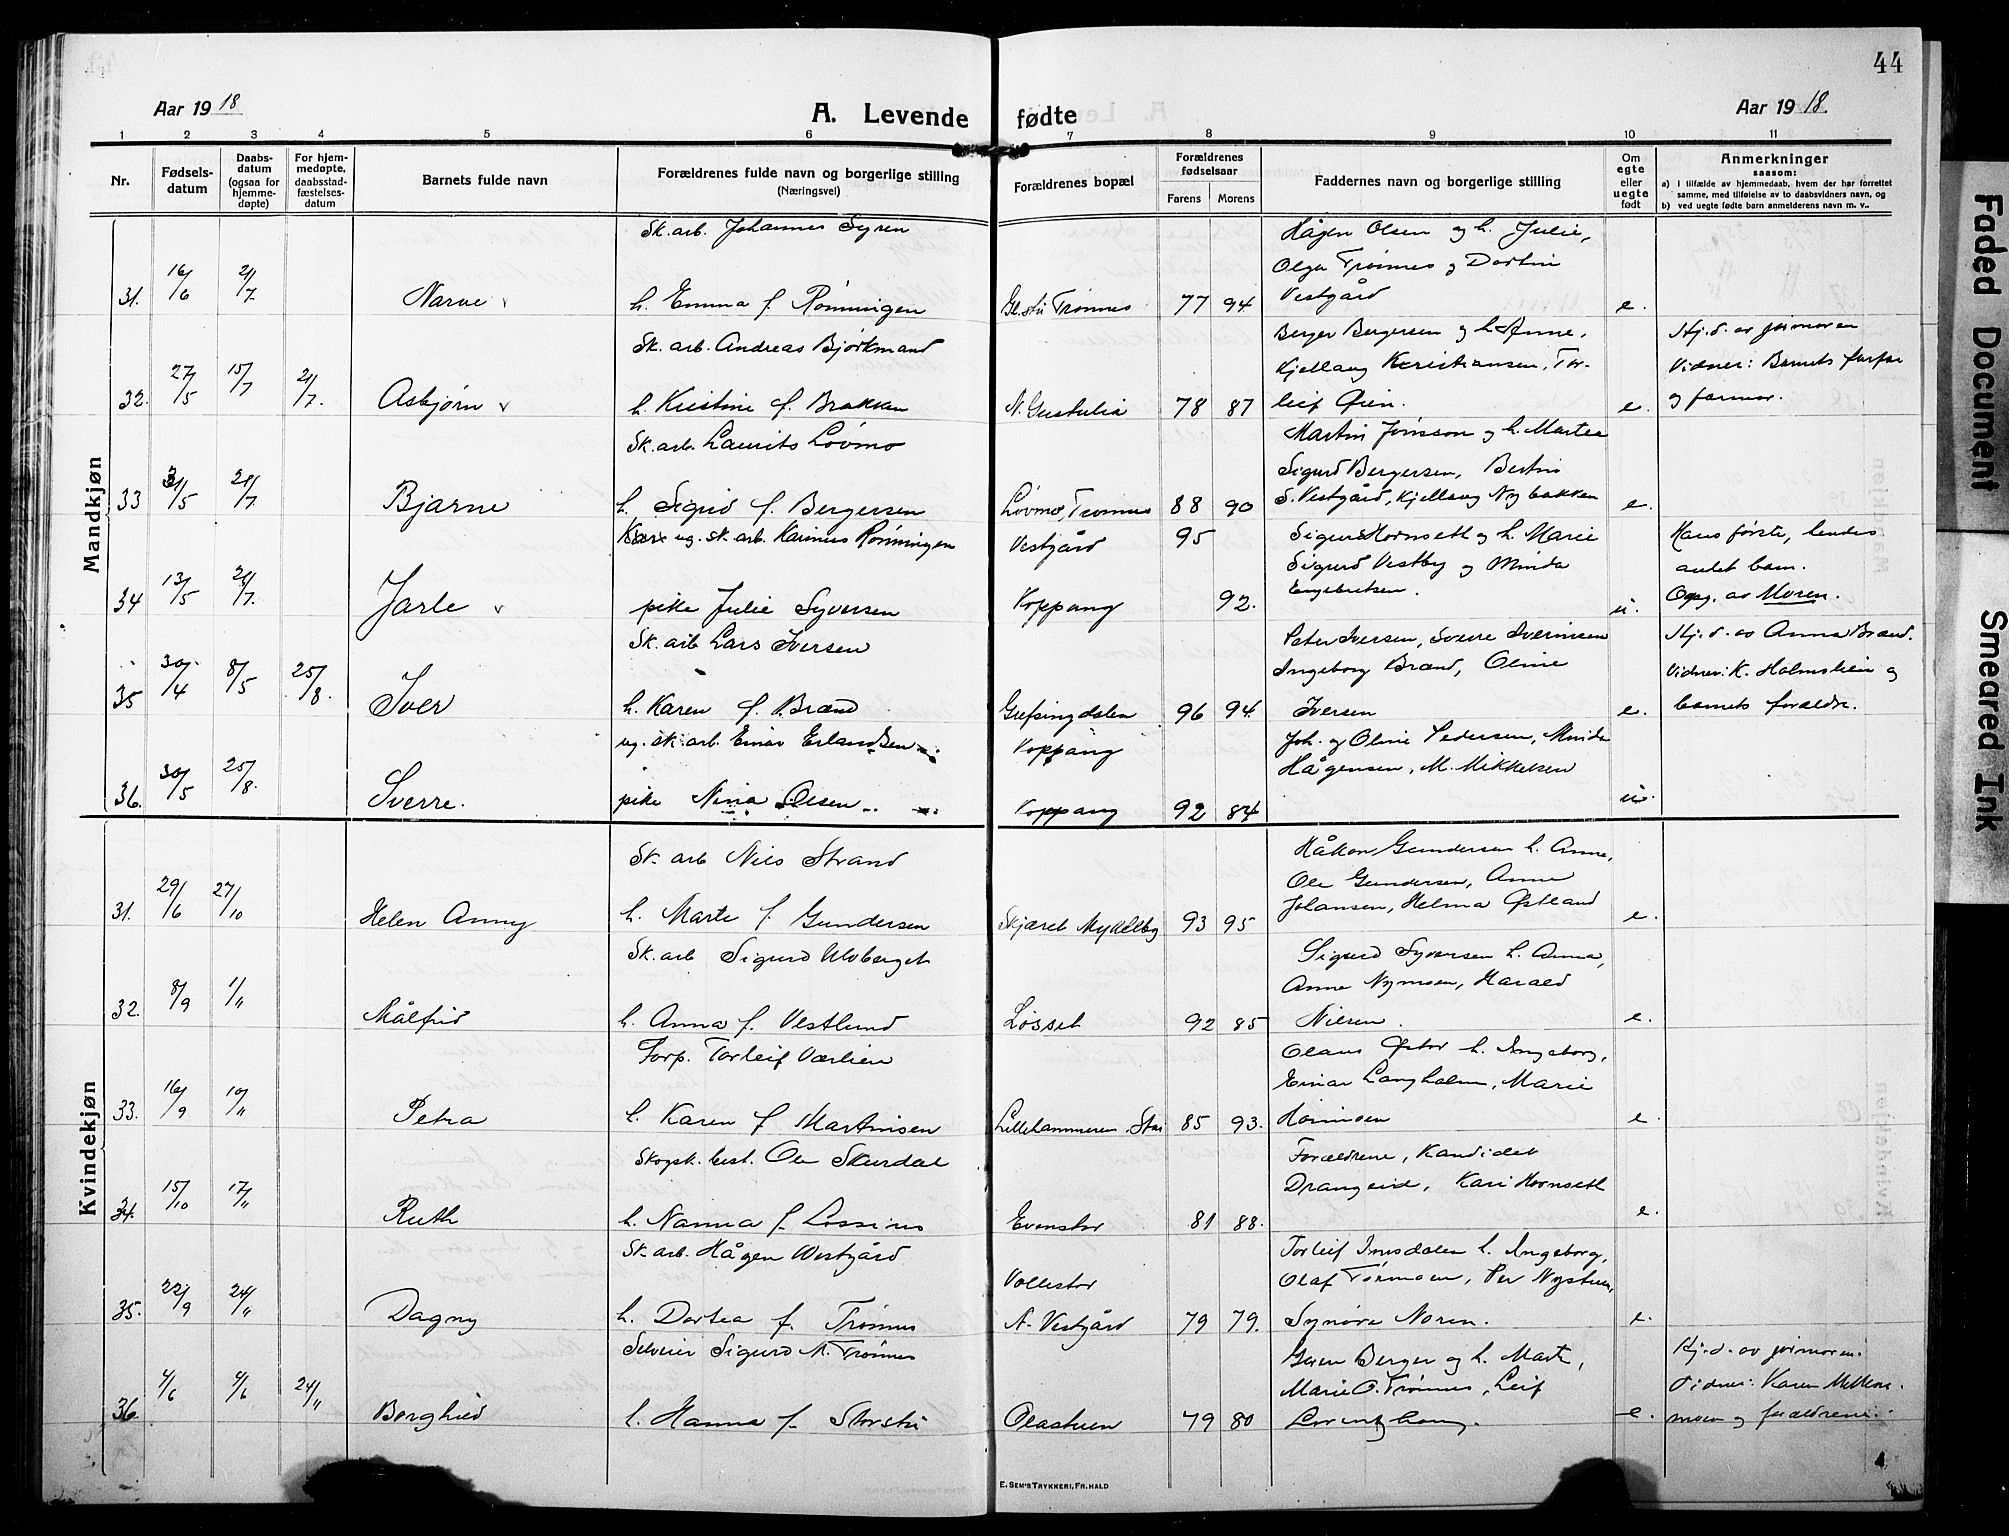 44
Aar 1918
A. Levende fødte
Aar 1918
1 2 3 4 5 6 7 8 9 10 11
Nr.
Fødsels-
datum
Daabs-
datum
(ogsaa for
hjemme-
døpte)
For hjem-
medøpte,
daabsstad-
fæstelses-
datum
Barnets fulde navn
Forældrenes fulde navn og borgerlige stilling
(Næringsvei)
Forældrenes bopæl
Forældrenes
fødselsaar
Farens Morens
Faddernes navn og borgerlige stilling
Om
egte
eller
uegte
født
Anmerkninger
saasom:
a) I tilfælde av hjemmedaab, hvem der har forrettet
samme, med tilføielse av to daabsvidners navn, og
b) ved uegte fødte barn anmelderens navn m. v.
Mandkjøn
Sk. arb. Johannes Syren
Hågen Olsen og h. Julie,
Olga Trønnes og Dortin
31. 16/6 21/7. Narve h. Emma f. Rønningen Gl.stu Trønnes 77 94. Vestgård e.
Sk. arb. Andreas Bjørkmand
Berger Bergersen og h. Anne,
Hj.d. av jormoren
Kjellaug Kristiansen, Tor-
Vidner: Barnets farfar
32. 27/5 15/7 21/7. Asbjørn h. Kristine f. Brækken N. 78 87 leif Øien. e. og farmor.
Sk. arb. Laurits Løvmo
Martin Jönsson og h. Martea
Sigurd Bergersen, Bertin
33 31/5 21/7. Bjarne h. Sigrid f. Bergersen Løvmo, Trønnes 88 90 S. Vestgård, Kjellaug Nybakken e.
ug. sk. arb. Karinus Rønningen Vestgård 95
Sigurd Hornseth og h. Marie
Hans første, hendes
Sigurd Vestby og Minda
andet barn.
34 13/5 21/7. Jarle pike Julie Syversen Koppang 92. Engebretsen. u. Opg. av Moren.
Sk. arb Lars Iversen
Peter Iversen, Sverre Iverinsen
Hj.d. av Anna Brænd.
Ingeborg Brænd, Oline
Vidner: K. Holmstien og
35 30/4 8/5 25/8. Iver h. Karen f. Brænd Grefsingdalen 96 94. Iversen e. barnets forældre.
ug. sk. arb. Einar Erlandsen Koppang
Joh. og Oline Pedersen, Minda
Hågensen, M. Mikkelsen
36. 30/5 25/8. Sverre. pike Nina Olsen Koppang 92 84 u.
Kvindekjøn
Sk. arb Nils Strand
Håkon Gundersen h. Anne,
Ole Gundersen, Anne
31. 29/6 27/10 Helen Anny h. Marte f. Gundersen Skjæret Mykleby 93 95 Johansen, Helma Østland e.
Sk. arb Sigurd Ulvberget
Sigurd Syversen h. Anna,
Anne Nymoen, Harald
32. 8/9 1/11 Målfrid h. Anna f. Vestlund Løsset 92 85 Nilsen. e.
Forp. Torleif Værlien
Olaus Østor h. Ingeborg,
Einar Langholm, Marie
33. 16/9 10/11 Petra h. Karen f. Martinsen Lillehammeren, Stai 85 93. e.
Skogsk. best. Ole Skurdal
Forældrene, Kandidat
Drangeid, Kari Hornseth
34. 15/10 17/11 Ruth h. Nanna f. Lossius Evenstad 81 88. e.
Sk. arb. Hågen Westgård
Torleif Imsdalen h. Ingeborg,
Vollestor
Olaf Tørmoen, Per Nystuen,
35. 22/9 24/11 Dagny h. Dortea f. Trønnes N. Vestgård 79 79. Synøve Noren. e.
Selveier Sigurd M. Trønnes
Berger og h. Marte,
Hj.d. av jormoren.
Marie O. Trønnes, Leif
Vidner: Karen
36. 4/6 9/6 24/11 Borghild h. Hanna f. Storstu Olastuen 79 80 e. moen og forældrene.
E. SEM'S TRYKKERI, FR.HALD
Faded Document
Smeared Ink